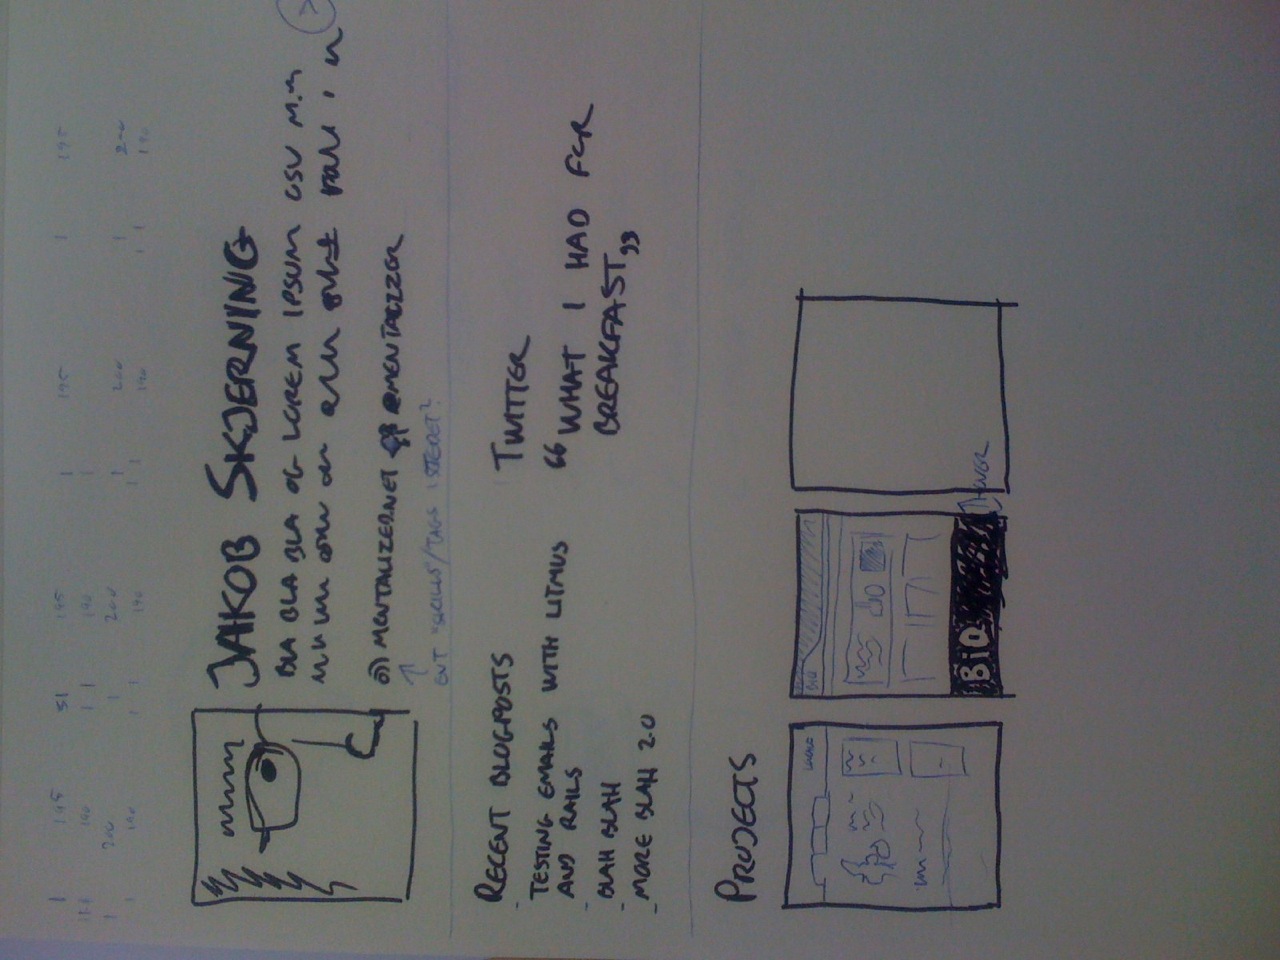 1 195 51 195 1 195 1 195
190 1 1 190 1
1 200 1 200 1 200 1 200
1 190 1 1 190 1 1 190 1 1 190
JAKOB SKJERNING
BLA BLA BLA OG LOREM IPSUM OSV M.M
>
MENTALIZER.NET @MENTALIZER
EVT "SKILLS"/TAGS ISTEDET?
RECENT BLOGPOSTS
- TESTING EMAILS WITH LITMUS
AND RAILS
- BLAH BLAH
- MORE BLAH 2.0
TWITTER
“WHAT I HAD FOR
BREAKFAST„
PROJECTS
BiQ
BiQ
HOVER